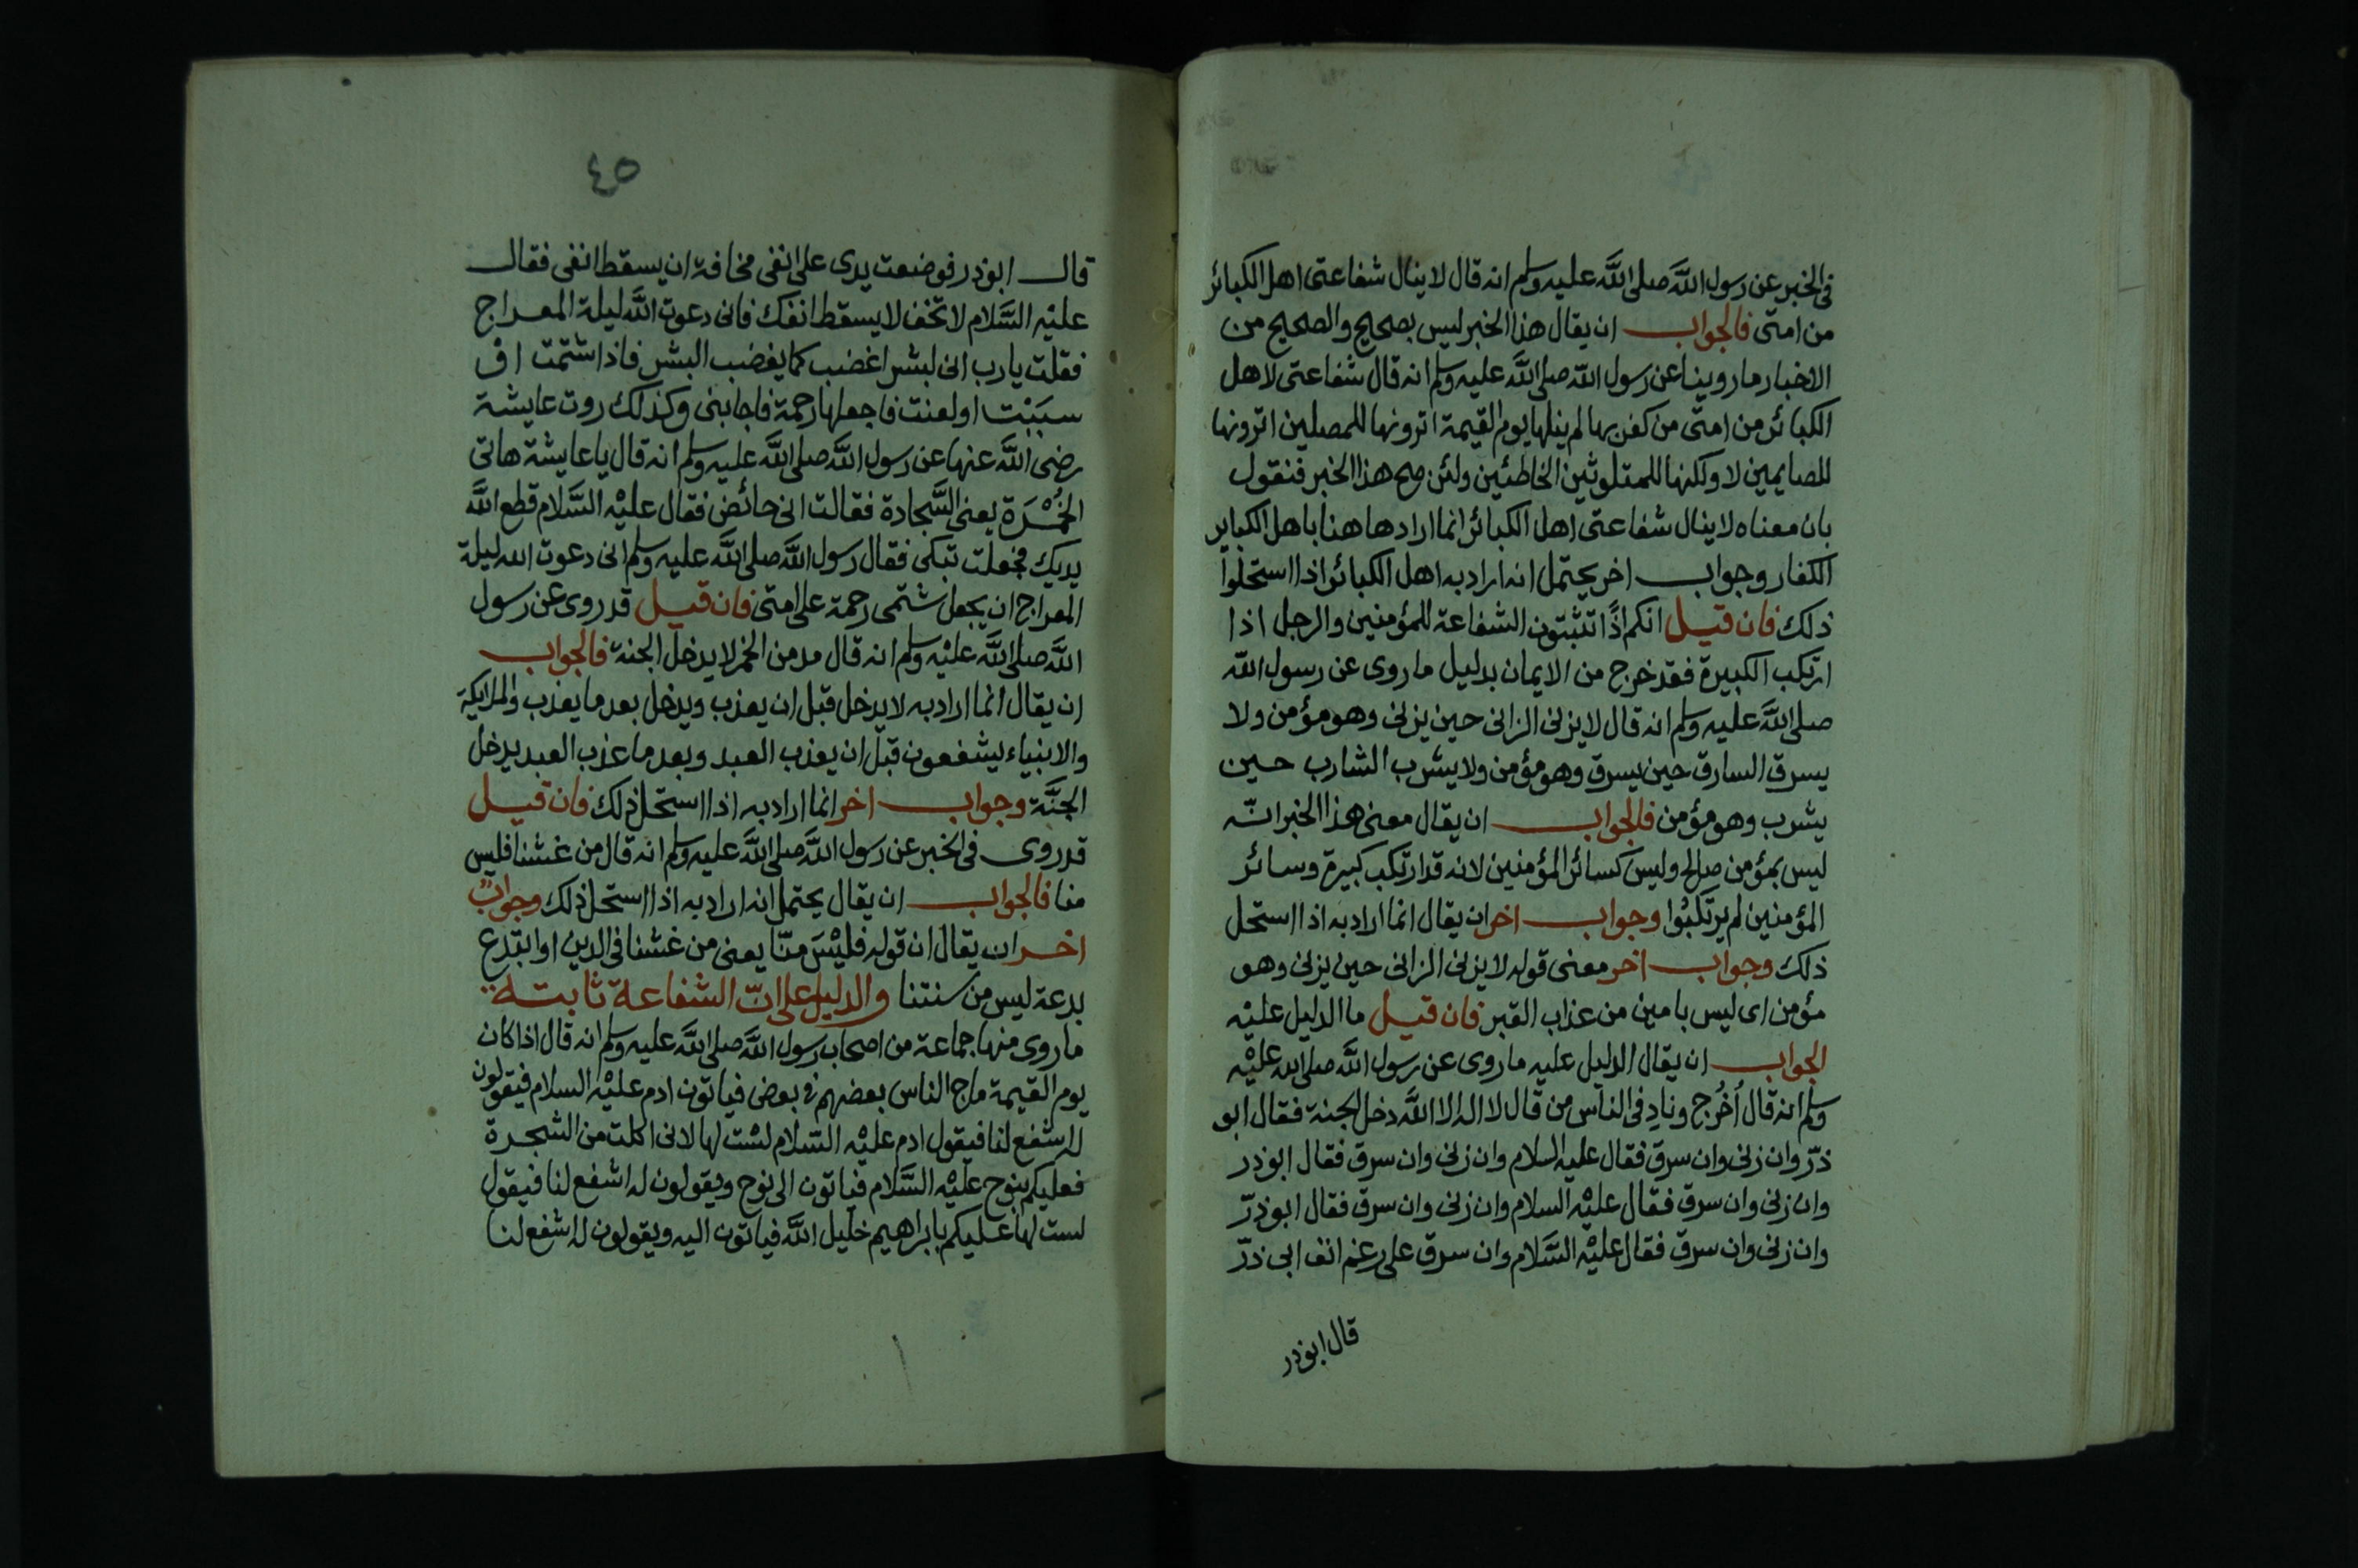 فى الخبر عن رسول اللَّه صلى اللَّه عليه وسلم انه قال لا ينال شفاعتى اهل الكبائر
من امتى فالجواب ان يقال هذا الخبر ليس بصحيح والصحيح من
الاخبار ما روينا عن رسول اللّه صلى اللَّه عليه وسلم انه قال شفاعتى لاهل
الكبائر من امتى من كفر بها لم ينلها يوم القيمة اترونها للمصلين اترونها
للصايمين لا ولكنها للمتلوثين الخاطئين ولئن صح هذا الخبر فنقول
بان معناه لا ينال شفاعتى اهل الكبائر انما اراد هاهنا باهل الكباير
الكفار وجواب اخر يحتمل انه اراد به اهل الكبائر اذا استحلوا
ذلك فان قيل انكم اذًا تثبتون الشفاعة للمؤمنين والرجل اذا
ارتكب الكبيرة فقد خرج من الايمان بدليل ما روى عن رسول اللّه
صلى اللَّه عليه وسلم انه قال لا يزنى الزانى حين يزنى وهو مؤمن ولا
يسرق السارق حين يسرق وهو مؤمن ولا يشرب الشارب حين
يشرب وهو مؤمن فالجواب ان يقال معنى هذا الخبر انّه
ليس بمؤمن صالح وليس كسائر المؤمنين لانه قد ارتكب كبيرة وسائر
المؤمنين لم يرتكبُوا وجواب اخر ان يقال انما اراد به اذا استحل
ذلك وجواب اخر معنى قوله لا يزنى الزانى حين يزنى وهو
مؤمن اى ليس بامين من عذاب القبر فان قيل ما الدليل عليْه
الجواب ان يقال الدليل عليه ما روى عن رسول اللَّه صلى الله عليْه
وسلم انه قال اُخْرُج ونادِ فى الناس من قال لا اله الا اللَّه دخل الجنة فقال ابو
ذرّ وان زنى وان سرق فقال عليه السلام وان زنى وان سرق فقال ابوذر
وان زنى وان سرق فقال عليْه السلام وان زنى وان سرق فقال ابوذرّ
وان زنى وان سرق فقال عليْه السَّلام وان سرق على رغم انف ابى ذرّ
قال ابوذر
٤٥
قال ابوذر فوضعت يدى على انفى مخافة ان يسقط انفى فقال
عليْه السَّلام لا تخف لا يسقط انفك فانى دعوت اللَّه ليلة المعراج
فقلت يا رب انى لبشر اغضب كما يغضب البشر فاذا شتمت اوْ
سبَبْت او لعنت فاجعلها رحمة فاجابنى وكذلك روت عايشة
رضى اللَّه عنها عن رسول اللَّه صلى اللَّه عليه وسلم انه قال يا عايشة هاتى
الخُمْرَة يعنى السَّجادة فقالت انى حائض فقال عليْه السَّلام قطع اللَّه
يديك فجعلت تبكى فقال رسول اللَّه صلى اللَّه عليه وسلم انى دعوت الله ليلة
المعراج ان يجعل شتمى رحمة على امتى فان قيل قد روى عن رسول
اللَّه صلى اللَّه عليْه وسلم انه قال مدمن الخمر لا يدخل الجنة فالجواب
ان يقال انما اراد به لا يدخل قبل ان يعذب ويدخل بعد ما يعذب والملايكة
والانبياء يشفعون قبل ان يعذب العبد وبعد ما عذب العبد يدخل
الجنَّة وجواب اخر انما اراد به اذا استحل ذلك فان قيل
قد روى فى الخبر عن رسول اللَّه صلى اللَّه عليه وسلم انه قال من غشنا فليس
منا فالجواب ان يقال يحتمل انه اراد به اذا استحل ذلك وجوابٌ
اخر ان يقال ان قوله فليْسَ منّا يعنى من غشنا فى الدين او ابتدع
بدعة ليس من سنتنا والدليل على انّ الشفاعة ثابتة
ما روى منها جماعة من اصحاب رسول اللَّه صلى اللَّه عليه وسلم انه قال اذا كان
يوم القيمة ماج الناس بعضهم فى بعض فياتون ادم عليْه السلام فيقولون
له اشفع لنا فيقول ادم عليْه السّلام لسْت لها لانى اكلت من الشجرة
فعليكم بنوح عليْه السَّلام فياتون الى نوح ويقولون له اشفع لنا فيقول
لست لها عليكم بابراهيم خليل اللَّه فياتون اليه ويقولون له اشفع لنا